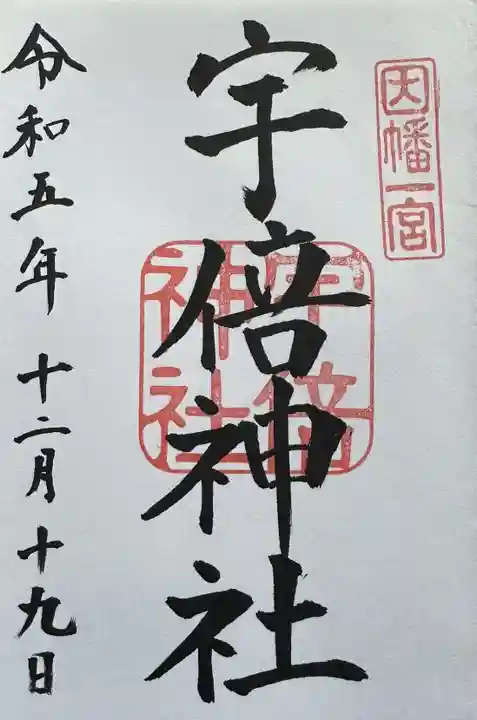 因幡一宮
宇倍神社
宇倍
神社
令和五年 十二月十九日